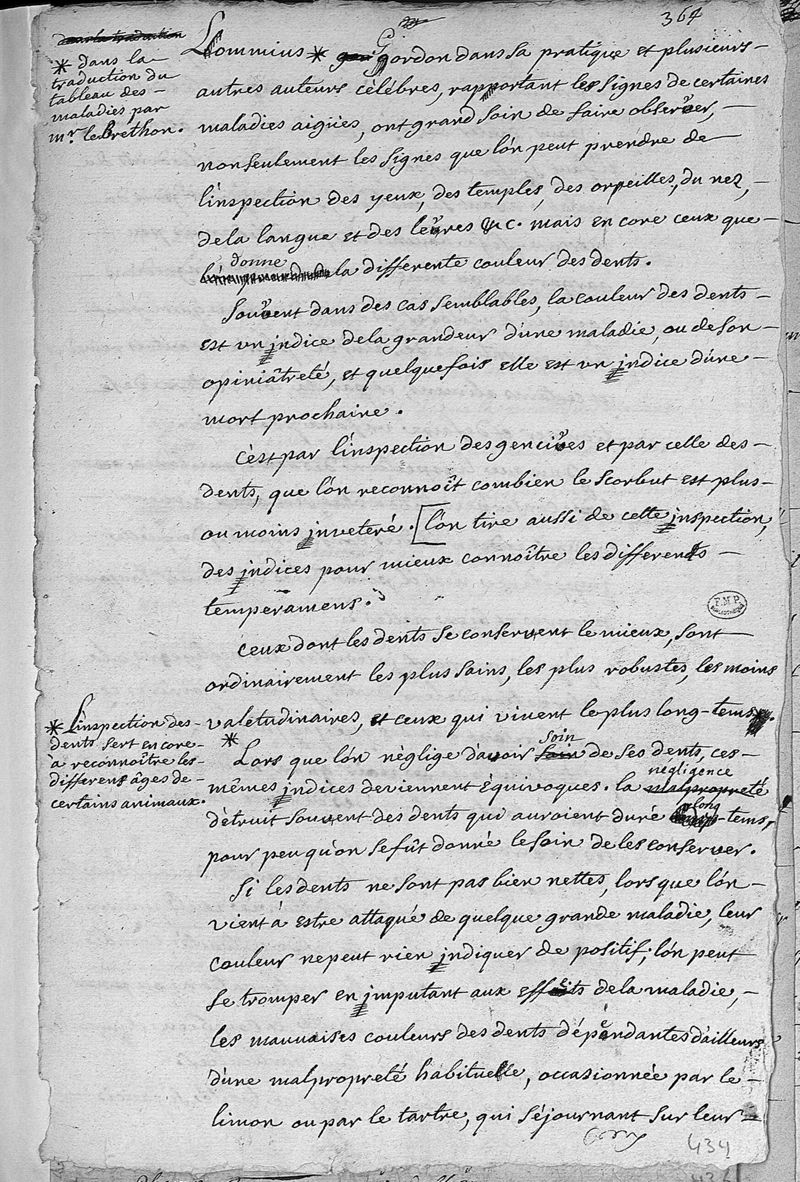 364
Lommius * Gordon dans sa pratique et plusieurs
autres auteurs célébres, rapportant les signes de certaines
maladies aigües, ont grand soin de faire observer,
non seulement les signes que l'on peut prendre de
l'inspection des yeux, des temples, des orpeilles, du nez,
de la langue et des levres &c. mais encore ceux que
donne
la differente couleur des dents.
Souvent dans des cas semblables, la couleur des dents
est un indice de la grandeur d'une maladie, ou de son
opiniâtreté, et quelquefois elle est un indice d'une
mort prochaine.
C'est par l'inspection des gencives et par celle des
dents, que l'on reconnoît combien le scorbut est plus
ou moins inveteré. [l'on tire aussi de cette inspection,
des indices pour mieux connoître les differents
temperamens.
Ceux dont les dents se conservent le mieux, sont
ordinairement les plus sains, les plus robustes, les moins
valetudinaires, et ceux qui vivent le plus long-tems.
*
soin
Lors que l'on nèglige d'avoir soin de ses dents, ces
négligence
mêmes indices deviennent équivoques. la malpropreté
long
détruit souvent des dents qui auroient duré -tems,
pour peu qu'on se fût donné le soin de les conserver.
Si les dents ne sont pas bien nettes, lors que l'on
vient á estre attaqué de quelque grande maladie, leur
couleur ne peut rien indiquer de positif; l'on peut
se tromper en imputant aux effets de la maladie,
les mauvaises couleurs des dents dépendantes d'ailleurs
d'une malpropreté habituelle, occasionnée par le
limon ou par le tartre, qui séjournant sur leur
434
dans la traduction
* dans la
traduction du
tableau des
maladies par
mr. le Brethon.
* L'inspection des
dents sert encore
à reconnoître les
differens âges de
certains animaux.
F.M.P.
BIBLIOTHEQUE